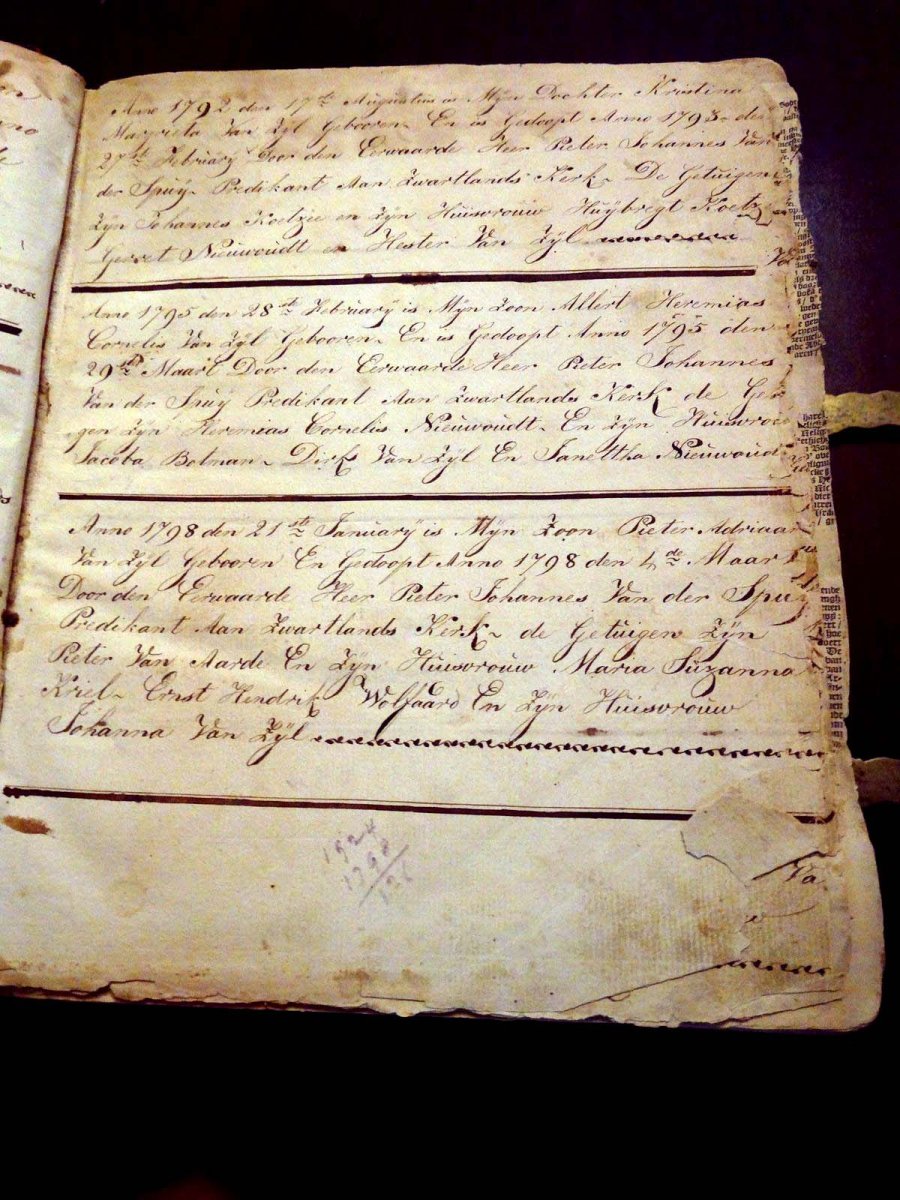 Anno 1792 den 17te Augustus is Mÿn Dochter Kristina
Magrieta Van Zÿl Gebooren En is Gedoopt Anno 1793 den
27ste Februarÿ Door den Eerwaarde Heer Pieter Johannes Van
der Spuÿ Predikant Aan Zwartlands Kerk De Getuigen
Zÿn Johannes Koetzee en Zÿn Huisvrouw Huÿbregt Koetz
Gerret Nieuwoudt en Hester Van Zÿl
Anno 1795 den 28ste Februarÿ is Mÿn Zoon Albert Heremias
Cornelis Van Zÿl Gebooren En is Gedoopt Anno 1795 den
29ste Maart Door den Eerwaarde Heer Pieter Johannes
Van der Spuÿ Predikant Aan Zwartlands Kerk de Ge
gen Zÿn Heremias Cornelis Nieuwoudt En Zÿn Huisvrou
Jacoba Botman Dirk Van Zÿl En Janettha Nieuwoud
Anno 1798 den 21ste Januarÿ is Mÿn Zoon Pieter Adriaan
Van Zÿl Gebooren En Gedoopt Anno 1798 den 4de Maart
Door den Eerwaarde Heer Pieter Johannes Van der Spuÿ
Predikant Aan Zwartlands Kerk de Getuigen Zÿn
Pieter Van Aarde En Zÿn Huisvrouw Maria Suzanna
Kriel Ernst Hendrik Wolfaard En Zÿn Huisvrouw
Johanna Van Zÿl
1924
1798
126
Va